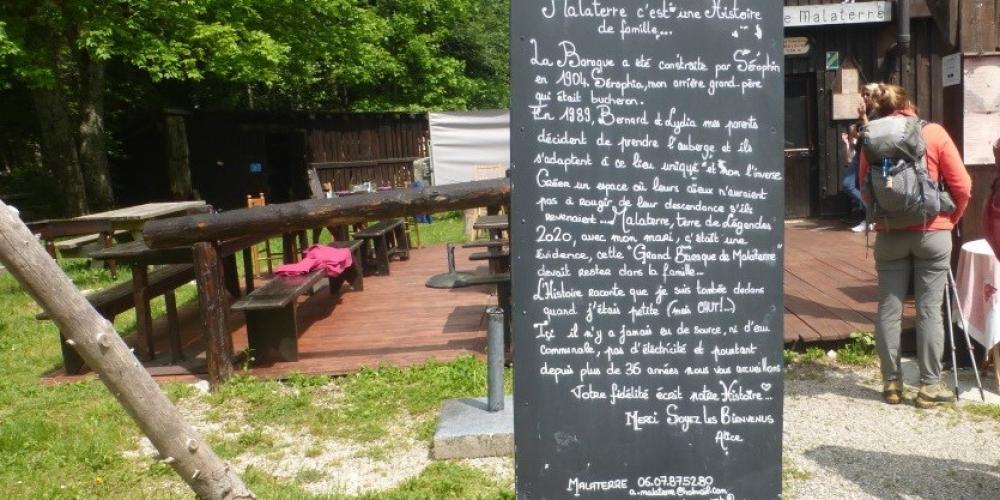 Malaterre c'est une Histoire
de famille...
La Baraque a été construite par Séraphin
en 1904. Séraphin, mon arrière grand-père
qui était bucheron.
En 1989, Bernard et Lydia mes parents
décident de prendre l'auberge et ils
s'adaptent à ce lieu unique et non l'inverse
Créer un espace où leurs aïeux n'auraient
pas à rougir de leur descendance s'ils
revenaient... Malaterre, terre de Légendes
2020, avec mon mari, c'était une
évidence, cette "Grand Baraque de Malaterre"
devait rester dans la famille...
L'Histoire raconte que je suis tombée dedans
quand j'étais petite (mais CHUT!...)
Içi il n'y a jamais eu de source, ni d'eau
communale, pas d'électricité et pourtant
depuis plus de 36 années nous vous accueillons
Votre fidélité écrit notre Histoire...
Merci Soyez Les Bienvenus
Alice
MALATERRE 06.07.87.52.80
a.malaterre@hotmail.com
e Malaterre